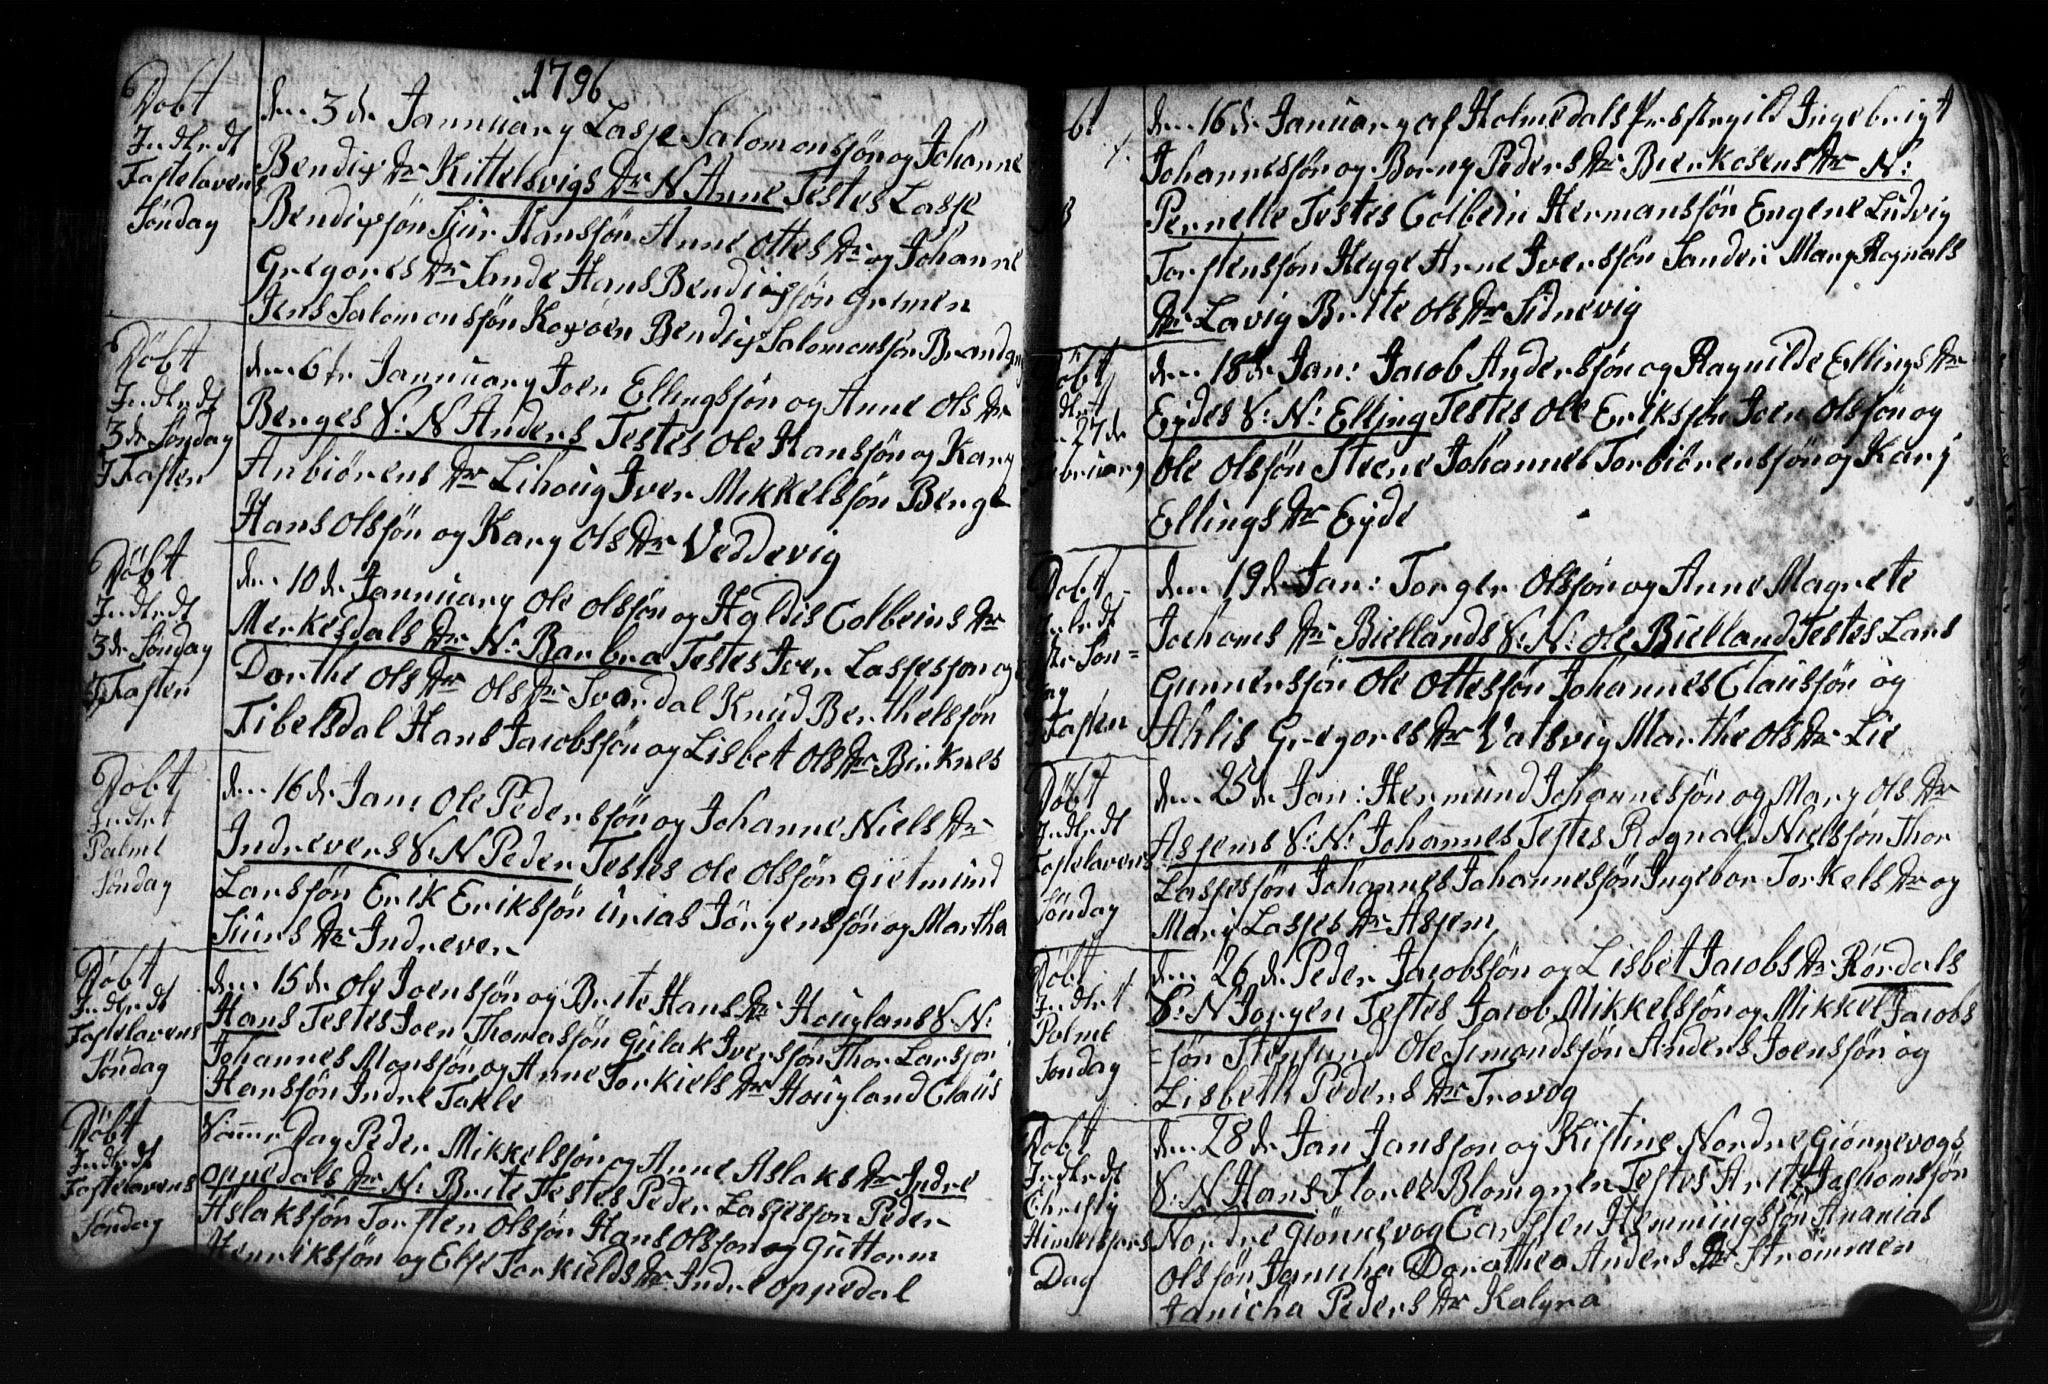 1796
Döbt
Indledt
Fastelavens
Söndag
den 3de Jannuary Lasse Salomonsjön og Johanne
Bendix Dr Kittelsvigs Dr N Anne Testes Lasse
Bendixsjön Siur Hansjön Anne Ottes Dr og Johanne
Gregores Dr Sande Hans Bendixsjön Gremen
Jens Salomonsjön Koxöen Bendix Salomonsjön
Döbt
Indledt
3de Söndag
I Fasten
den 6te Jannuary Joen Ellingsjön og Anne Ols Dr
Berges S: N Anders Testes Ole Hansjön og Kary
Anbiörens Dr Lihoug Iver Mikkelsjön Berge
Hans Olsjön og Kary Ols Dr Veddevig
Döbt
Indledt
3de Söndag
I Fasten
den 10de Jannuary Ole Olsjön og Haldis Colbeins Dr
Merkesdals Dr N: Barbra Testes Iver Lassesjon og
Dorthe Ols Dr Ols Dr Svardal Knud Berthelsjön
Tibelsdal Hans Jacobsjön og Lisbet Ols Dr Birknes
Döbt
Indlet
Palme
Söndag
den 16de Jan: Ole Pedersjön og Johanne Niels Dr
Indrevers S: N Peder Testes Ole Olsjön Gietmund
Larsjön Erik Eriksjön Urias Jörgensjön og Martha
Siurs Dr Indrever
Döbt
Indledt
Fastelavens
Söndag
den 15de Ole Joensjön og Brite Hans Dr Houglans S: N:
Hans Testes Joen Thomasjön Gulak Iversjön Thor Larsjon
Johannes Monsjön og Anne Torkiels Dr Hougland Claus
Hansjön Indre Takle
Döbt
Indledt
Fastelavens
Söndag
Samme Dag Peder Mikkelsjön og Anne Aslaks Dr Indre
Oppedals Dr N: Brite Testes Peder Lassesjon Peder
Aslaksjön Torsten Olsjön Hans Olsjon og Guttorm
Henriksjön og Else Torkields Dr Indre Oppedal
den 16de January af Holmedals Prestegild Ingebrigt
Johannesjön og Borny Peders Dr Bierkosens Dr N:
Pernelle Testes Colbein Hermansjön Engene Ludvig
Torstensjön Hegge Arne Iversjön Sander Mary Rognals
Dr Lavig Brite Ols Dr Sidnevig
Döbt
27de
den 18de Jan: Jacob Andersjön og Ragnilde Ellings Dr
Eydes S: N: Elling Testes Ole Eriksjön Joen Olsjön og
Ole Olsjön Steene Johannes Torbiörensjön og Kary
Ellings Dr Eyde
Döbt
Fasten
den 19de Jan: Torger Olsjön og Anne Magrete
Jochoms Dr Biellands S: N: Ole Bielland Testes Lars
Gunnersjön Ole Ottesjön Johannes Clausjön og
Ahlis Gregores Dr Vatsvig Marthe Ols Dr Lie
Döbt
Indledt
Fastelavens
Söndag
den 25de Jan: Hermund Johannesjön og Mary Ols Dr
Asjems S: N: Johannes Testes Rognald Nielsjön Thor
Lassesjön Johannes Johannesjön Ingebor Torkels Dr og
Mary Lasses Dr Asjem
Döbt
Indledt
Palme
Söndag
den 26de Peder Jacobsjön og Lisbet Jacobs Dr Rördals
S: N Jorgen Testes Jacob Mikkelsjön og Mikkel Jacobs
=sjön Stensund Ole Simondsjön Anders Joensjön og
Lisbeth Peders Dr Trovog
Döbt
Indledt
Christy
Himelfarts
Dag
den 28de Jan Jansjon og Kistine Nordre Giönnevogs
S: N Hans Florez Blomgren Testes Arett Jochomsjön
Nordre Giönnevog Carsten Hemmingsjön Ananias
Olsjön Janicha Dorathea Anders Dr Strömmen
Janicha Peders Dr Kalgra